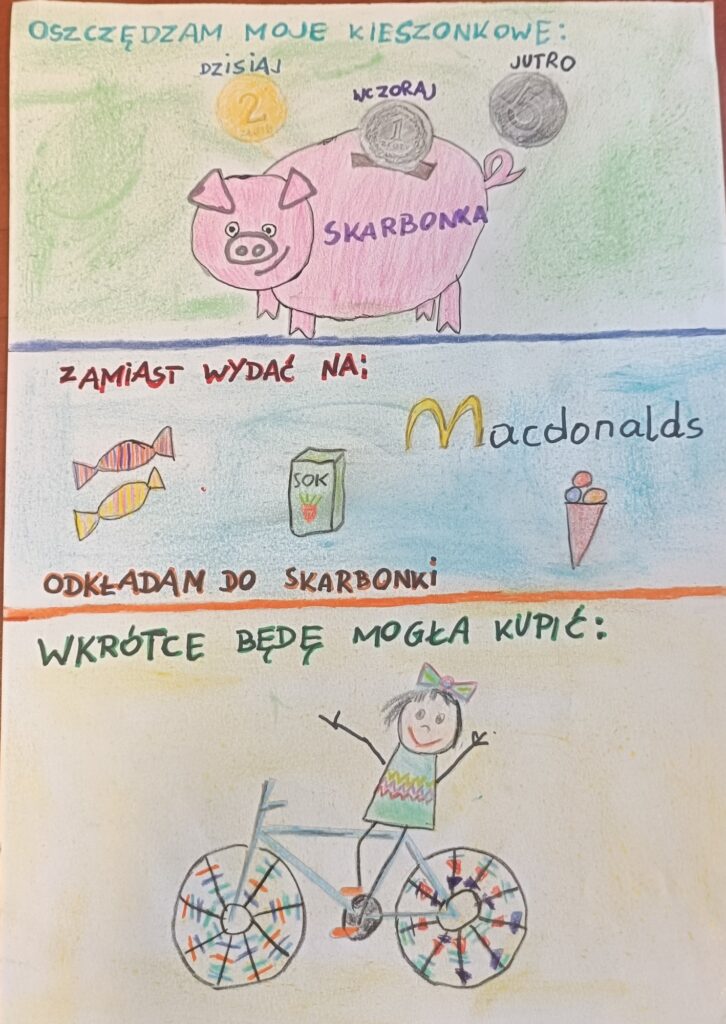 OSZCZĘDZAM MOJE KIESZONKOWE:
DZISIAJ WCZORAJ JUTRO
2
ZŁOTE
1
ZŁOTY
5
SKARBONKA
ZAMIAST WYDAĆ NA:
Macdonalds
SOK
ODKŁADAM DO SKARBONKI
WKRÓTCE BĘDĘ MOGŁA KUPIĆ: